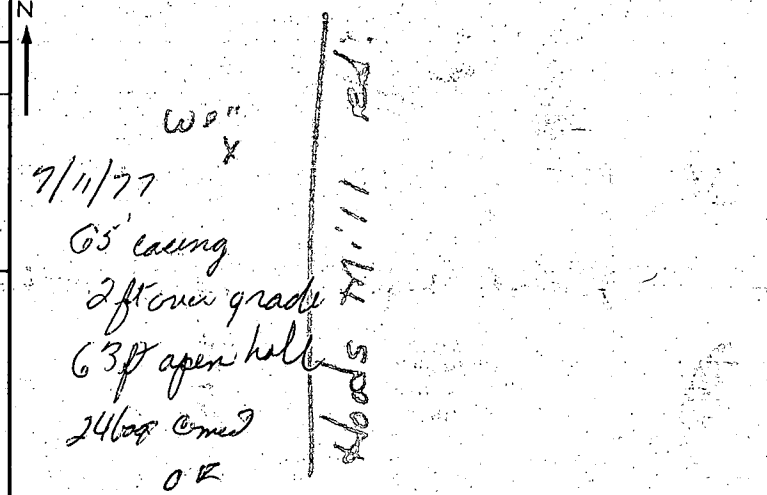 N
Well
X
7/11/77
65' casing
2 ft over grade
63 ft open hole
24 bags cement
OK
Hoods Mill rd.